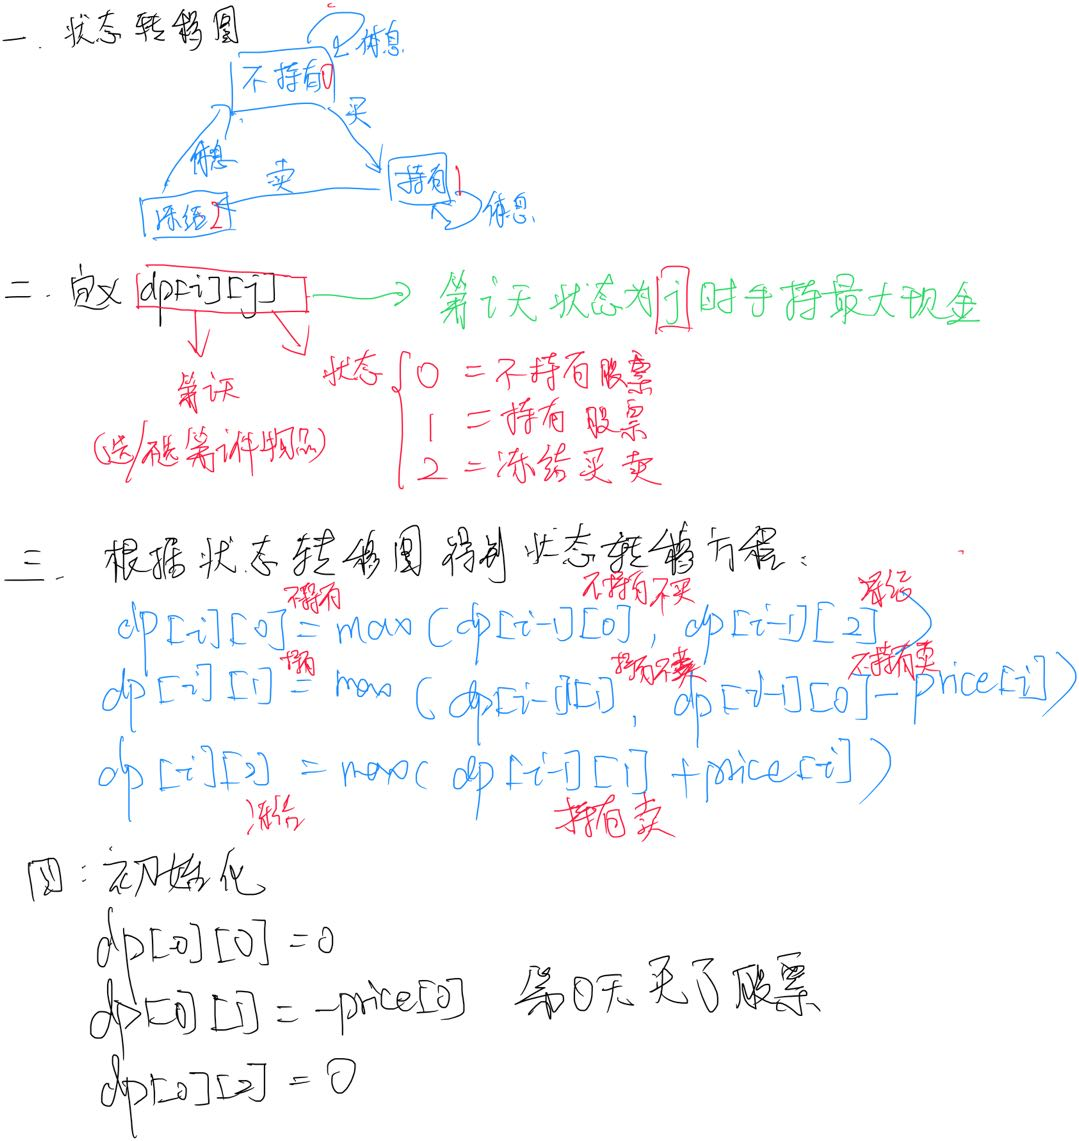 一. 状态转移图
休息
不持有0
买
休息
卖
持有1
冻结2
休息
二. 定义 dp[i][j] 第i天状态为j时手持最大现金
第i天
(选/不选第i件物品)
状态 0 = 不持有股票
1 = 持有股票
2 = 冻结买卖
三. 根据状态转移图得到状态转移方程:
不持有 不持有不买 冻结
dp[i][0] = max(dp[i-1][0], dp[i-1][2])
持有 持有不卖 不持有卖
dp[i][1] = max(dp[i-1][1], dp[i-1][0]-price[i])
dp[i][2] = max(dp[i-1][1]+price[i])
冻结 持有卖
四: 初始化
dp[0][0] = 0
dp[0][1] = -price[0] 第0天买了股票
dp[0][2] = 0